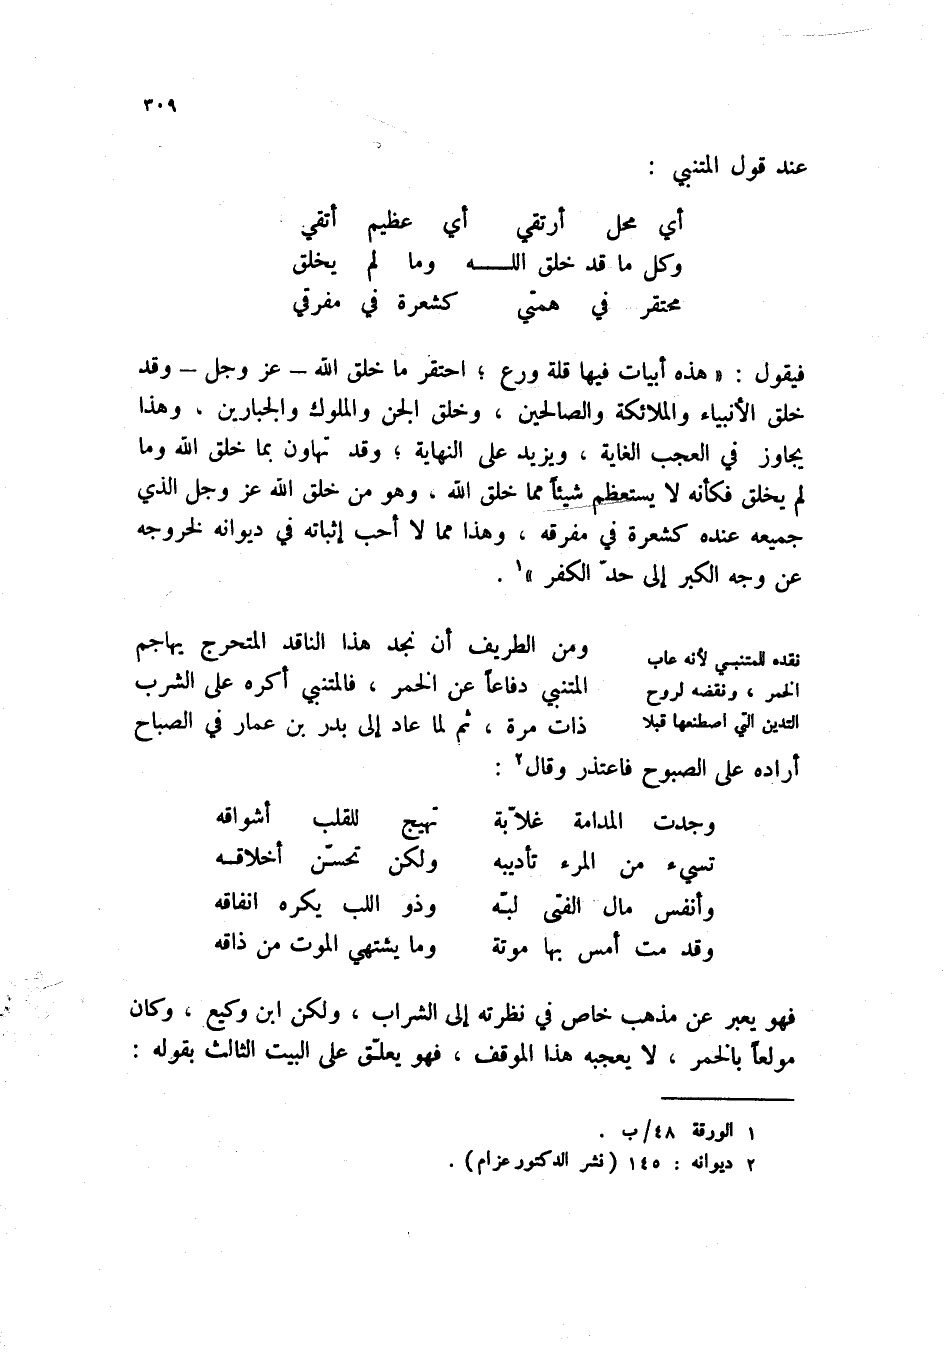 ٣٠٩
عند قول المتنبي :
أي محل أرتقي أي عظيم أتقي
وكل ما قد خلق اللـــــه وما لم يخلق
محتقر في همتّي كشعرة في مفرقي
فيقول : « هذه أبيات فيها قلة ورع ؛ احتقر ما خلق الله – عز وجل – وقد
خلق الأنبياء والملائكة والصالحين ، وخلق الجن والملوك والجبارين ، وهذا
يجاوز في العجب الغاية ، ويزيد على النهاية ؛ وقد تهاون بما خلق الله وما
لم يخلق فكأنه لا يستعظم شيئاً مما خلق الله ، وهو من خلق الله عز وجل الذي
جميعه عنده كشعرة في مفرقه ، وهذا مما لا أحب إثباته في ديوانه لخروجه
عن وجه الكبر إلى حدّ الكفر »١ .
نقده للمتنبي لأنه عاب
الخمر ، ونقضه لروح
التدين التي اصطنعها قبلا
ومن الطريف أن نجد هذا الناقد المتحرج يهاجم
المتنبي دفاعاً عن الخمر ، فالمتنبي أكره على الشرب
ذات مرة ، ثم لما عاد إلى بدر بن عمار في الصباح
أراده على الصبوح فاعتذر وقال٢ :
وجدت المدامة غلاّبة تهيج للقلب أشواقه
تسيء من المرء تأديبه ولكن تحسّن أخلاقـه
وأنفس مال الفتى لبّه وذو اللب يكره انفاقه
وقد مت أمس بها موتة وما يشتهي الموت من ذاقه
فهو يعبر عن مذهب خاص في نظرته إلى الشراب ، ولكن ابن وكيع ، وكان
مولعاً بالخمر ، لا يعجبه هذا الموقف ، فهو يعلّق على البيت الثالث بقوله :
١ الورقة ٤٨/ب .
٢ ديوانه : ١٤٥ (نشر الدكتور عزام) .